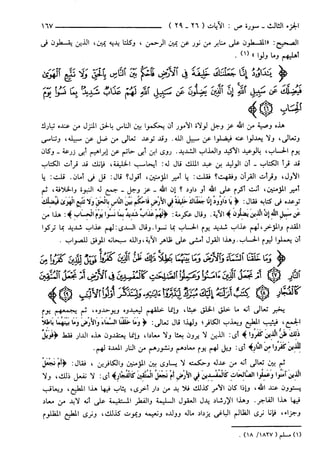 الجزء الثالث - سورة ص : الآيات ( ٢٦ - ٢٩ ) ١٦٧
الصحيح: «المقسطون على منابر من نور عن يمين الرحمن ، وكلتا يديه يمين، الذين يقسطون فى
أهليهم وما ولوا » (١) .
﴿ يَٰدَاوُۥدُ إِنَّا جَعَلْنَٰكَ خَلِيفَةً فِى ٱلْأَرْضِ فَٱحْكُم بَيْنَ ٱلنَّاسِ بِٱلْحَقِّ وَلَا تَتَّبِعِ ٱلْهَوَىٰ
فَيُضِلَّكَ عَن سَبِيلِ ٱللَّهِ إِنَّ ٱلَّذِينَ يَضِلُّونَ عَن سَبِيلِ ٱللَّهِ لَهُمْ عَذَابٌ شَدِيدٌۢ بِمَا نَسُوا۟ يَوْمَ
ٱلْحِسَابِ ﴿٢٦﴾ ﴾
هذه وصية من الله عز وجل لولاة الأمور أن يحكموا بين الناس بالحق المنزل من عنده تبارك
وتعالى، ولا يعدلوا عنه فيضلوا عن سبيل الله. وقد توعد تعالى من ضل عن سبيله، وتناسى
يوم الحساب، بالوعيد الأكيد والعذاب الشديد. روى ابن أبى حاتم عن إبراهيم أبى زرعة - وكان
قد قرأ الكتاب - أن الوليد بن عبد الملك قال له: أيحاسب الخليفة، فإنك قد قرأت الكتاب
الأول، وقرأت القرآن وفقهت؟ فقلت: يا أمير المؤمنين، أقول؟ قال: قل فى أمان. قلت: يا
أمير المؤمنين، أنت أكرم على الله أو داود ؟ إن الله - عز وجل - جمع له النبوة والخلافة، ثم
توعده فى كتابه فقال: ﴿ يَا دَاوُودُ إِنَّا جَعَلْنَاكَ خَلِيفَةً فِي الْأَرْضِ فَاحْكُم بَيْنَ النَّاسِ بِالْحَقِّ وَلَا تَتَّبِعِ الْهَوَىٰ فَيُضِلَّكَ
عَن سَبِيلِ اللَّهِ إِنَّ الَّذِينَ يَضِلُّونَ﴾ الآية. وقال عكرمة: ﴿لَهُمْ عَذَابٌ شَدِيدٌ بِمَا نَسُوا يَوْمَ الْحِسَابِ﴾: هذا من
المقدم والمؤخر، لهم عذاب شديد يوم الحساب بما نسوا. وقال السدى: لهم عذاب شديد بما تركوا
أن يعملوا ليوم الحساب. وهذا القول أمشى على ظاهر الآية. والله سبحانه الموفق للصواب .
﴿ وَمَا خَلَقْنَا ٱلسَّمَآءَ وَٱلْأَرْضَ وَمَا بَيْنَهُمَا بَٰطِلًا ذَٰلِكَ ظَنُّ ٱلَّذِينَ كَفَرُوا۟ فَوَيْلٌ لِّلَّذِينَ كَفَرُوا۟ مِنَ
ٱلنَّارِ ﴿٢٧﴾ أَمْ نَجْعَلُ ٱلَّذِينَ ءَامَنُوا۟ وَعَمِلُوا۟ ٱلصَّٰلِحَٰتِ كَٱلْمُفْسِدِينَ فِى ٱلْأَرْضِ أَمْ نَجْعَلُ ٱلْمُتَّقِينَ
كَٱلْفُجَّارِ ﴿٢٨﴾ كِتَٰبٌ أَنزَلْنَٰهُ إِلَيْكَ مُبَٰرَكٌ لِّيَدَّبَّرُوٓا۟ ءَايَٰتِهِۦ وَلِيَتَذَكَّرَ أُو۟لُوا۟ ٱلْأَلْبَٰبِ ﴿٢٩﴾ ﴾
يخبر تعالى أنه ما خلق الخلق عبثا، وإنما خلقهم ليعبدوه ويوحدوه، ثم يجمعهم يوم
الجمع ، فيثيب المطيع ويعذب الكافر؛ ولهذا قال تعالى: ﴿ وَمَا خَلَقْنَا السَّمَاءَ وَالْأَرْضَ وَمَا بَيْنَهُمَا بَاطِلًا
ذَٰلِكَ ظَنُّ الَّذِينَ كَفَرُوا ﴾ أى: الذين لا يرون بعثا ولا معادا، وإنما يعتقدون هذه الدار فقط ﴿ فَوَيْلٌ
لِّلَّذِينَ كَفَرُوا مِنَ النَّارِ﴾ أى: ويل لهم يوم معادهم ونشورهم من النار المعدة لهم.
ثم بين تعالى أنه من عدله وحكمته لا يساوى بين المؤمنين والكافرين ، فقال: ﴿أَمْ نَجْعَلُ
الَّذِينَ آمَنُوا وَعَمِلُوا الصَّالِحَاتِ كَالْمُفْسِدِينَ فِي الْأَرْضِ أَمْ نَجْعَلُ الْمُتَّقِينَ كَالْفُجَّارِ﴾ أى: لا نفعل ذلك، ولا
يستوون عند الله، وإذا كان الأمر كذلك فلا بد من دار أخرى، يثاب فيها هذا المطيع، ويعاقب
فيها هذا الفاجر. وهذا الإرشاد يدل العقول السليمة والفطر المستقيمة على أنه لابد من معاد
وجزاء، فإنا نرى الظالم الباغى يزداد ماله وولده ونعيمه ويموت كذلك، ونرى المطيع المظلوم
(١) مسلم ( ١٨٢٧/ ١٨) .